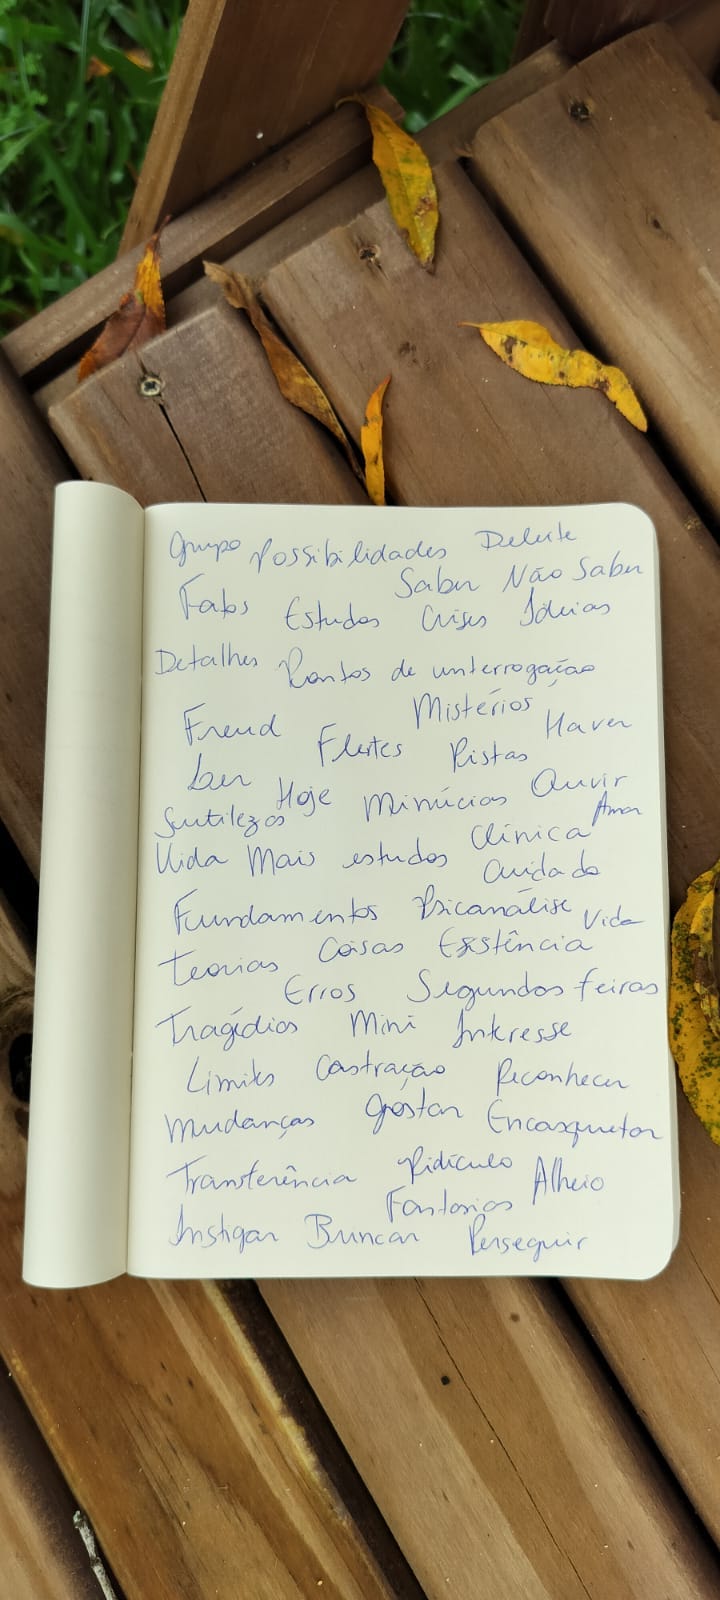 Grupo Possibilidades Deleite
Saber Não Saber
Fatos Estudos Crises Ideias
Detalhes Pontos de interrogação
Mistérios
Freud Flertes Pistas Haver
Ler Hoje Minúcias Ouvir
Sutilezas Clínica Amor
Vida Mais estudos Cuidado
Fundamentos Psicanálise Vida
Teorias Coisas Existência
Erros Segundas feiras
Tragédias Mini Interesse
Limites Castração Reconhecer
Mudanças Gostar Encasquetar
Transferência Ridículo Alheio
Fantasias
Instigar Brincar Perseguir